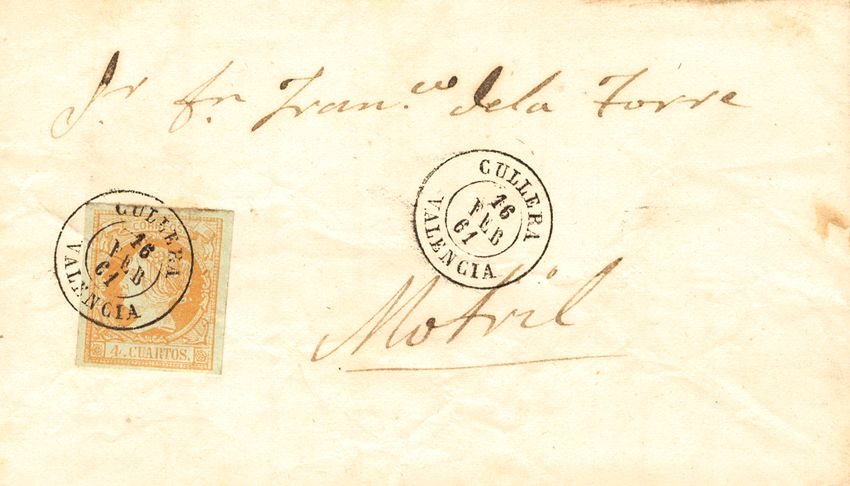 Sr Dn Fran.co dela Torre
CULLERA
16
FEB
61
VALENCIA
CULLERA
16
FEB
61
VALENCIA
Motril
4. CUARTOS.